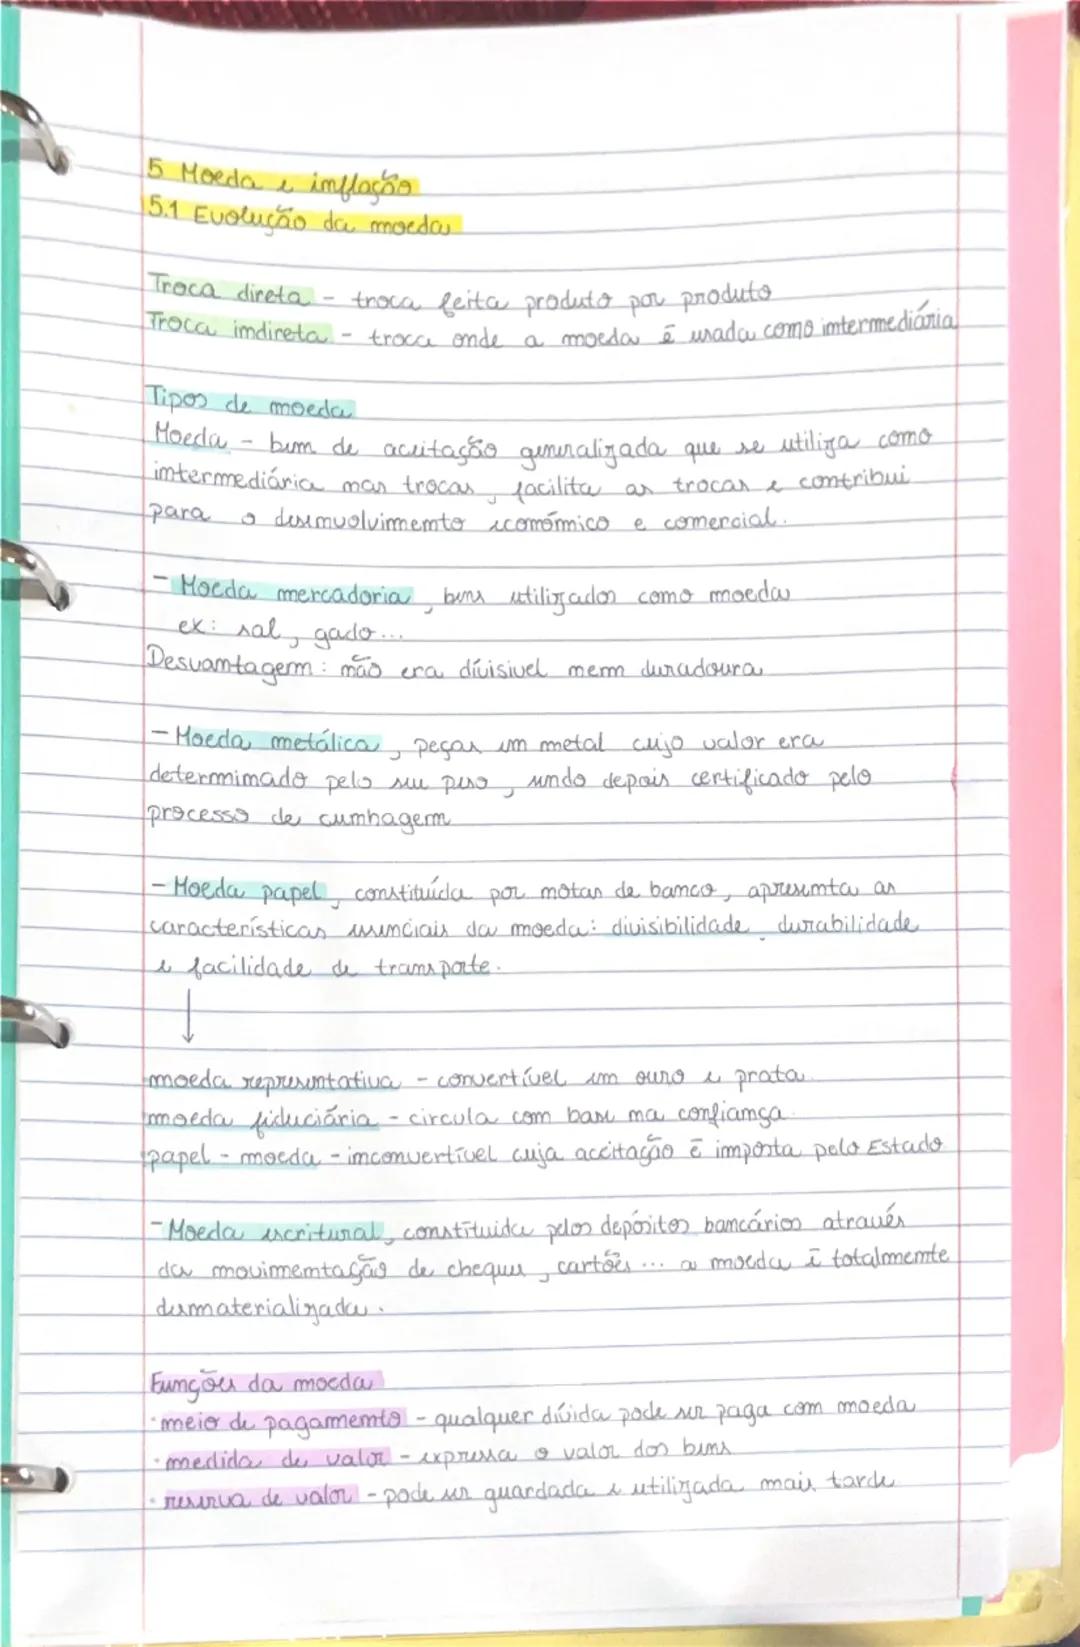 5 Moeda e inflação
5.1 Evolução da moeda
Troca direta - troca feita produto por produto
Troca indireta - troca onde a moeda é usada como intermediária
Tipos de moeda
Moeda - bem de aceitação generalizada que se utiliza como
intermediária nas trocas, facilita as trocas e contribui
para o desenvolvimento económico e comercial.
- Moeda mercadoria, bens utilizados como moeda
ex: sal, gado...
Desvantagem: não era divisivel nem duradoura
- Moeda metálica, peças em metal cujo valor era
determinado pelo seu peso, sendo depois certificado pelo
processo de cunhagem
- Moeda papel, constituída por notas de banco, apresenta as
características essenciais da moeda: divisibilidade, durabilidade
e facilidade de transporte.
↓
moeda representativa - convertível em ouro e prata.
moeda fiduciária - circula com base na confiança.
papel - moeda - inconvertível cuja aceitação é imposta pelo Estado
- Moeda escritural, constituida pelos depósitos bancários através
da movimentação de cheques, cartões... a moeda é totalmente
desmaterializada.
Funções da moeda
· meio de pagamento - qualquer dívida pode ser paga com moeda
· medida de valor - expressa o valor dos bens
· reserva de valor - pode ser guardada e utilizada mais tarde